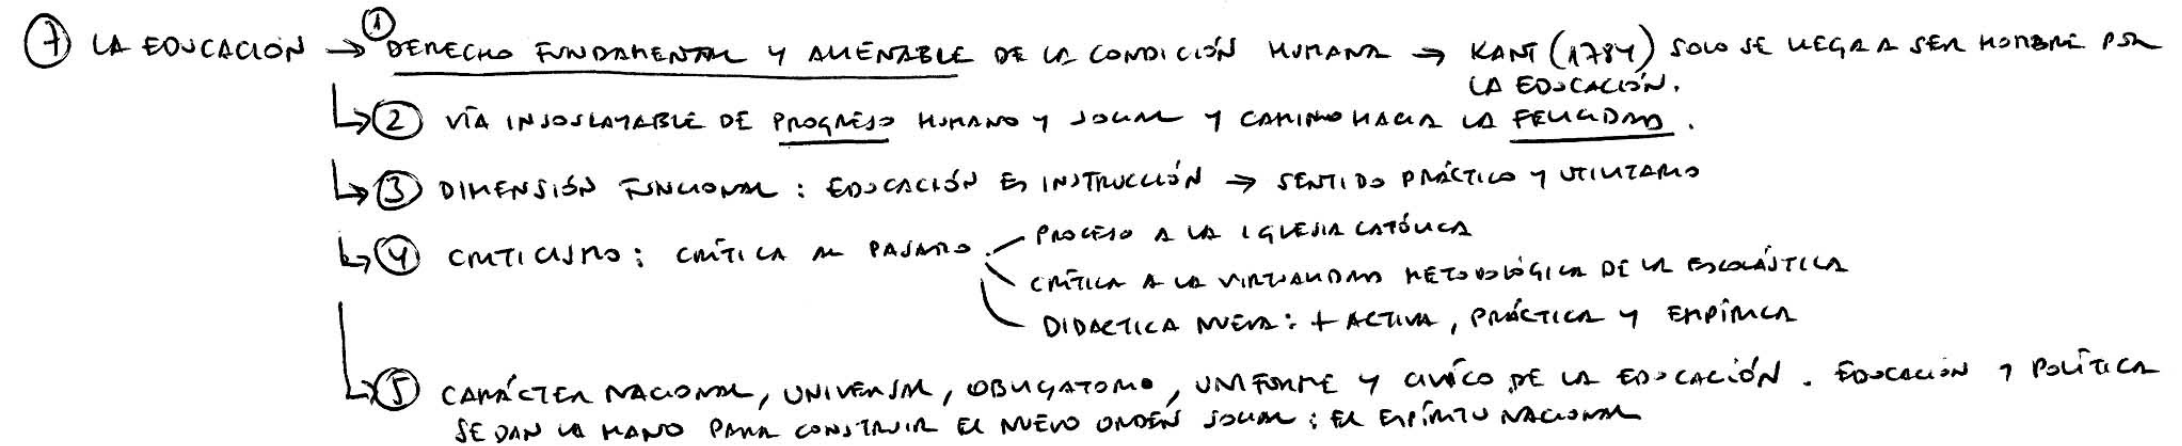 ⑦ LA EDUCACIÓN → ① DERECHO FUNDAMENTAL Y ALIENABLE DE LA CONDICIÓN HUMANA → KANT (1784) SOLO SE LLEGA A SER HOMBRE POR
LA EDUCACIÓN.
↳ ② VÍA INSOSLAYABLE DE PROGRESO HUMANO Y SOCIAL Y CAMINO HACIA LA FELICIDAD.
↳ ③ DIMENSIÓN FUNCIONAL: EDUCACIÓN ES INSTRUCCIÓN → SENTIDO PRÁCTICO Y UTILITARIO
↳ ④ CRITICISMO: CRÍTICA AL PASADO.
PROCESO A LA IGLESIA CATÓLICA
CRÍTICA A LA VIRTUALIDAD METODOLÓGICA DE LA ESCOLÁSTICA
DIDACTICA NUEVA: + ACTIVA, PRÁCTICA Y EMPÍRICA
↳ ⑤ CARÁCTER NACIONAL, UNIVERSAL, OBLIGATORIO, UNIFORME Y CIVÍCO DE LA EDUCACIÓN. EDUCACIÓN Y POLÍTICA
SE DAN LA MANO PARA CONSTRUIR EL NUEVO ORDEN SOCIAL: EL ESPÍRITU NACIONAL